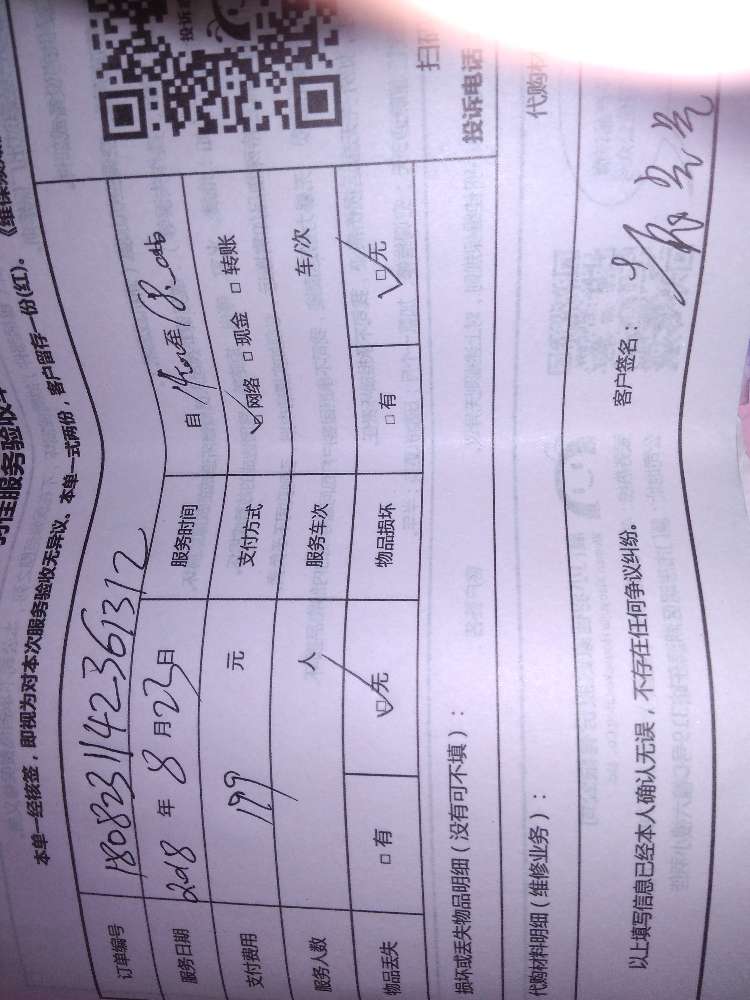 务验收单
本单一经核签，即视为对本次服务验收无异议、本单一式两份，客户留存一份(红)。《维保
订单编号 180823114236 1312
服务日期 2018 年 8 月 23 日 服务时间 自 至
支付费用 199 元 支付方式 ☑网络 □现金 □转账
服务人数 人 服务车次 车/次
物品丢失 □有 ☑无 物品损坏 □有 ☑无
损坏或丢失物品明细（没有可不填）：
代购材料明细（维修业务）：
以上填写信息已经本人确认无误，不存在任何争议纠纷。 客户签名：
投诉
扫
投诉电话
代购材